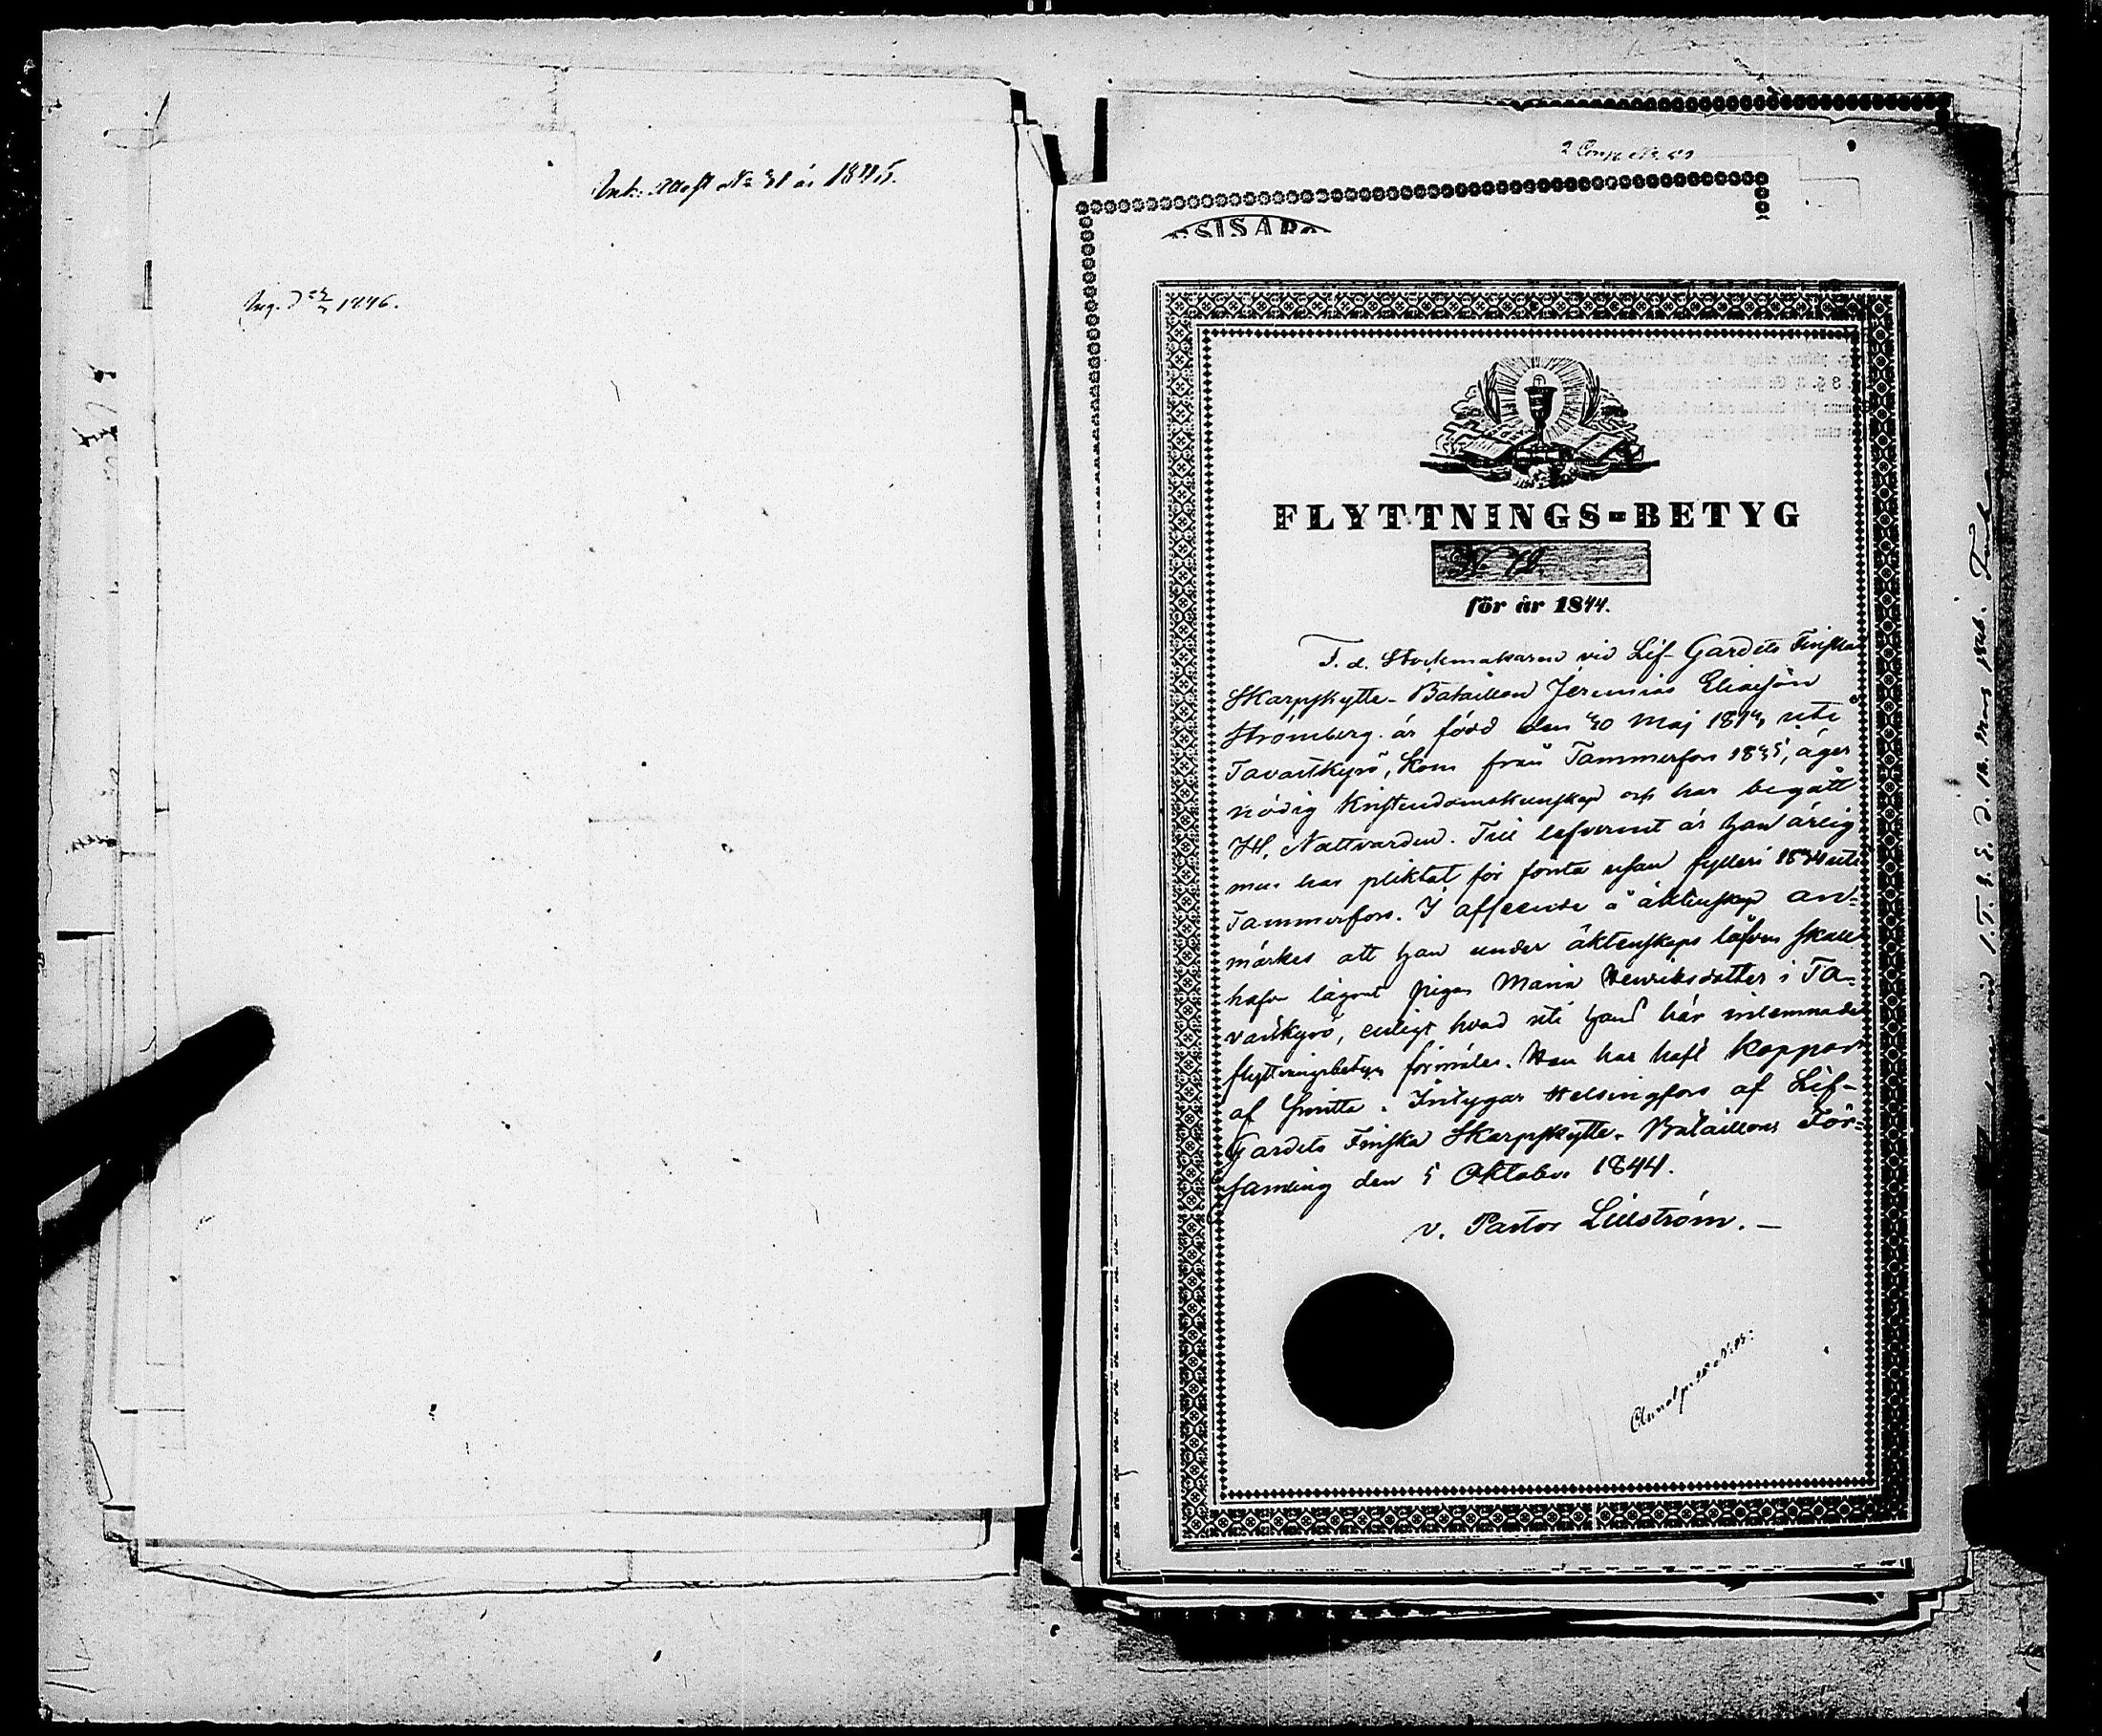 Ink: Attest No 31 år 1845.
1846.
FLYTTNINGS-BETYG
No 72.
för år 1844.
F. d. Stockmakaren vid Lif-Gardets Finska
Skarpskytte-Bataillon Jeremias Eliaesson
Strömberg är född den 30 Maj 181 uti
Tavastkyrö, kom från Tammerfors 1835, äger
nödig Kristendomskunskap och har begått
H. H. Nattvarden. Till lefvernet är han ärlig
men har pliktat för första resan fylleri 1834 uti
Tammerfors. I afseende å äktenskap an-
märkes att han under äktenskaps löfven skall
hafva lägrat pigan Maria Henriksdotter i Ta-
vastkyrö, enligt hvad uti hans här inlemnade
flyttningsbetyg förmäles. Han har haft koppor
af smitta. Intygar Helsingfors af Lif-
Gardets Finska Skarpskytte-Bataillons För-
samling den 5 Oktober 1844.
v. Pastor Lillström.